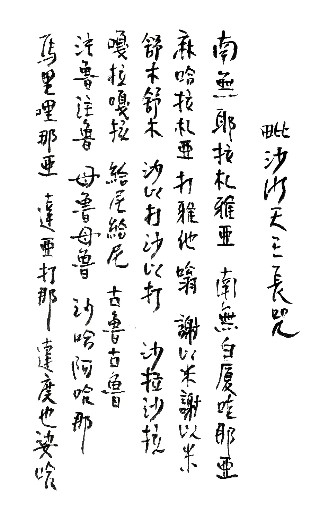 毗沙门天王長咒
南無 耶拉札雅亞 南無白厦哇那亞
麻哈拉札亞 打雅他 嗡 謝以米謝以米
舒木舒木 沙以打沙以打 沙拉沙拉
嘎拉嘎拉 給尼給尼 古魯古魯
注魯注魯 母魯母魯 沙哈阿哈那
馬里哩那亞 達亞打那 達度也娑哈